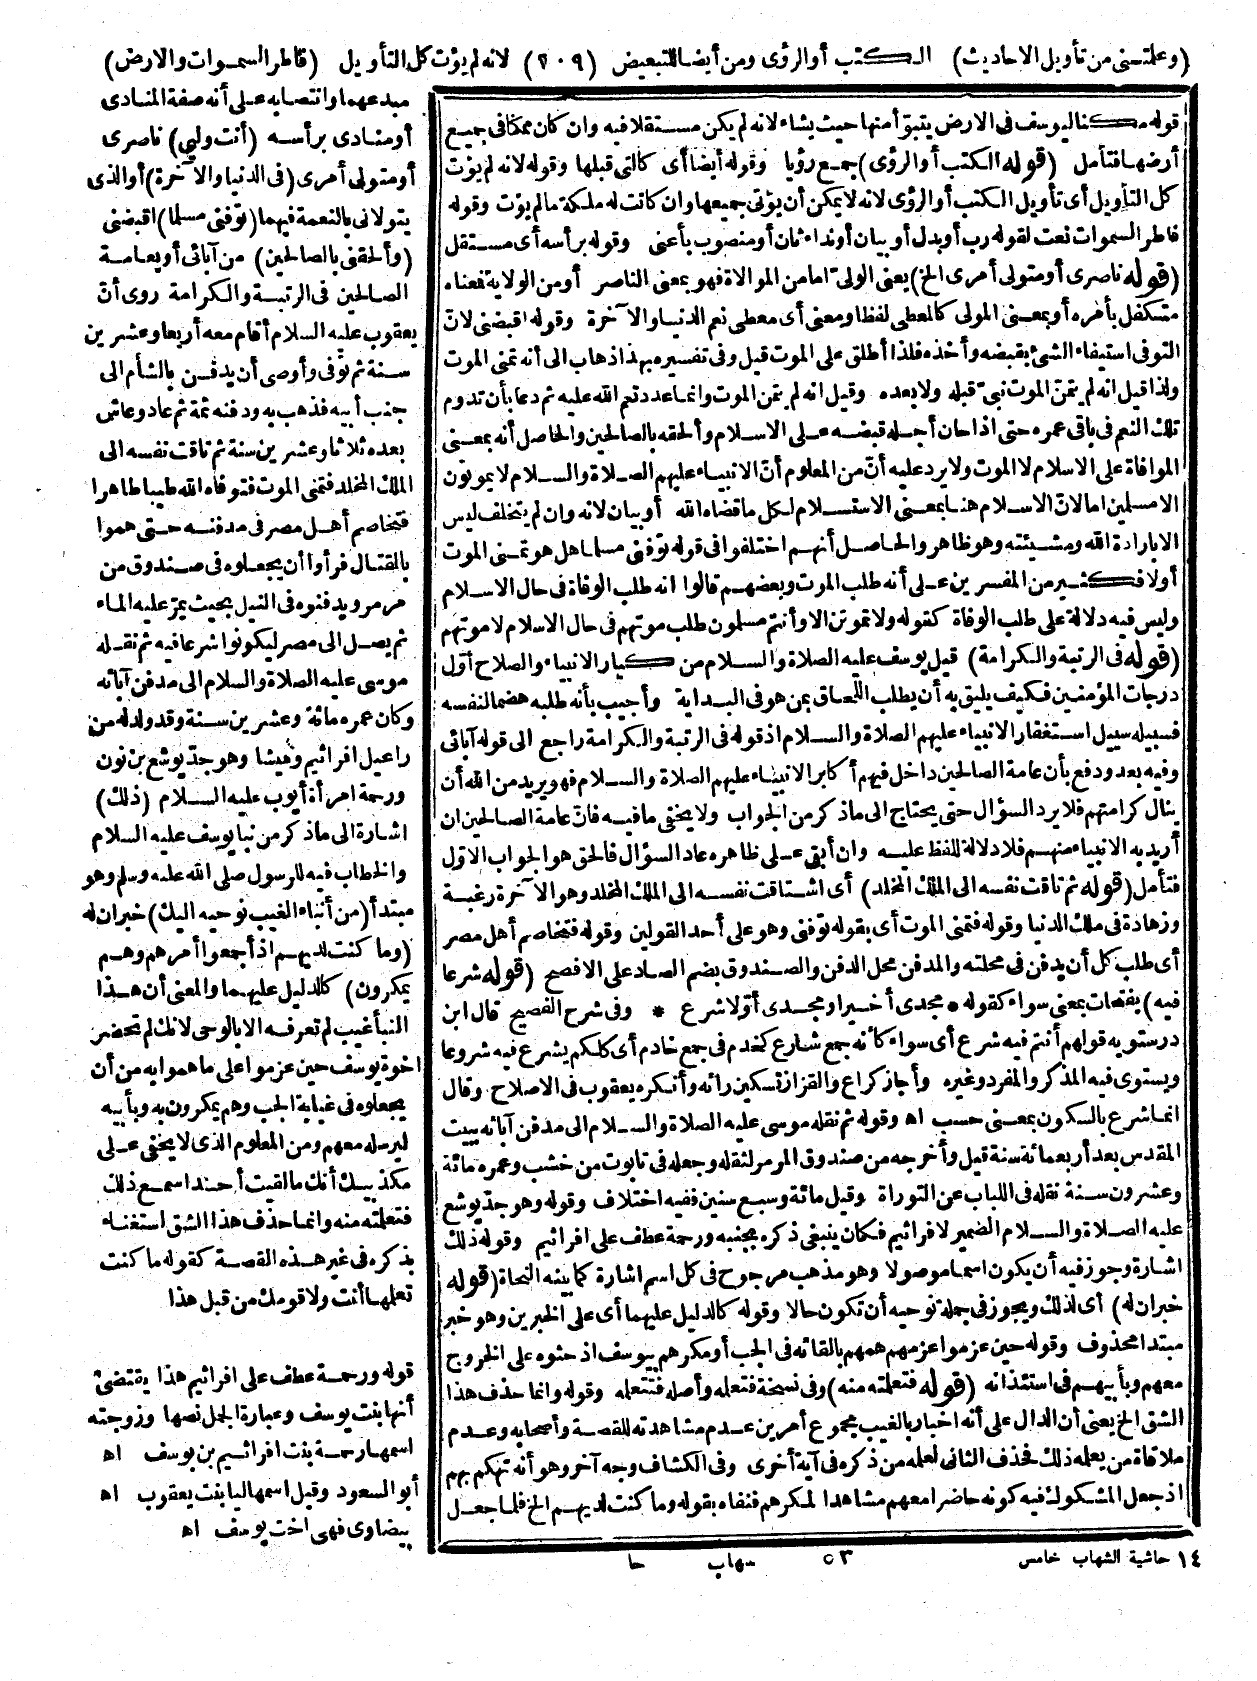 (وعلمتنى من تأويل الاحاديث) الكتب أو الرؤى ومن أيضا للتبعيض (٢٠٩) لانه لم يؤت كل التأويل (فاطر السموات والارض)
قوله مكنا ليوسف فى الارض يتبوّأ منها حيث يشاء لانه لم يكن مستقلا فيه وان كان ممكنا فى جميع
أرضها فتأمل (قوله الكتب أو الرؤى) جمع رؤيا وقوله أيضا أى كالتى قبلها وقوله لانه لم يؤت
كل التأويل أى تأويل الكتب أو الرؤى لانه لا يمكن أن يؤتى جميعها وان كانت له ملكة مالم يؤت وقوله
فاطر السموات نعت لقوله رب أو بدل أو بيان أو نداء ثان أو منصوب بأعنى وقوله برأسه أى مستقل
(قوله ناصرى أو متولى أمرى الخ) يعنى الولىّ امامن الموالاة فهو بمعنى الناصر أو من الولاية فعناه
متكفل بأمره أو بمعنى المولى كالمعطى لفظا ومعنى أى معطى نعم الدنيا والآخرة وقوله اقبضنى لانّ
التوفى استيفاء الشئ بقبضه وأخذه فلذا أطلق على الموت قيل وفى تفسيره بهذا ذهاب الى أنه تمنى الموت
ولذا قيل انه لم يتمنّ الموت نبىّ قبله ولا بعده وقيل انه لم يتمن الموت وانما عدد نعم الله عليه ثم دعا بأن تدوم
تلك النعم فى باقى عمره حتى اذا حان أجله قبضه على الاسلام وألحقه بالصالحين والحاصل أنه بمعنى
الموافاة على الاسلام لا الموت ولا يرد عليه أنّ من المعلوم أنّ الانبياء عليهم الصلاة والسلام لا يموتون
الامسلمين امالانّ الاسلام هنا بمعنى الاستسلام لكل ما قضاه الله أو بيان لانه وان لم يتخلف ليس
الابارادة الله ومشيئته وهو ظاهر والحاصل أنهم اختلفوا فى قوله توفنى مسلما هل هو تمنى الموت
أولا فكثير من المفسرين على أنه طلب الموت وبعضهم قالوا انه طلب الوفاة فى حال الاسلام
وليس فيه دلالة على طلب الوفاة كقوله ولا تموتن الا وأنتم مسلمون طلب موتهم فى حال الاسلام لا موتهم
(قوله فى الرتبة والكرامة) قيل يوسف عليه الصلاة والسلام من كبار الانبياء والصلاح أوّل
درجات المؤمنين فكيف يليق به أن يطلب اللحاق بمن هو فى البداية وأجيب بأنه طلبه هضما لنفسه
فسبيله سبيل استغفار الانبياء عليهم الصلاة والسلام اذ قوله فى الرتبة والكرامة راجع الى قوله آبائى
وفيه بعد ودفع بأن عامة الصالحين داخل فيهم أكابر الانبياء عليهم الصلاة والسلام فهو يريد من الله أن
ينال كرامتهم فلا يرد السؤال حتى يحتاج الى ماذكر من الجواب ولا يخفى ما فيه فانّ عامة الصالحين ان
أريد به الانبياء منهم فلا دلالة للفظ عليه وان أبقى على ظاهره عاد السؤال فالحق هو الجواب الاوّل
فتأمل (قوله ثم تاقت نفسه الى الملك المخلد) أى اشتاقت نفسه الى الملك المخلد وهو الآخرة رغبة
وزهادة فى ملك الدنيا وقوله فتمنى الموت أى بقوله توفنى وهو على أحد القولين وقوله فتخاصم أهل مصر
أى طلب كل أن يدفن فى محلته والمدفن محل الدفن والصندوق بضم الصاد على الافصح (قوله شرعا
فيه) بفتحات بمعنى سواء كقوله * مجدى أخيرا ومجدى أوّلا شرع * وفى شرح الفصيح قال ابن
درستويه قولهم أنتم فيه شرع أى سواء كأنه جمع شارع كخدم فى جمع خادم أى كلكم يشرع فيه شروعا
ويستوى فيه المذكر والمفرد وغيره وأجاز كراع والقزاز تسكين رائه وأنكره يعقوب فى الاصلاح وقال
انما شرع بالسكون بمعنى حسب اه وقوله ثم نقله موسى عليه الصلاة والسلام الى مدفن آبائه ببيت
المقدس بعد أربعمائة سنة قيل وأخرجه من صندوق المرمر لثقله وجعله فى تابوت من خشب وعمره مائة
وعشرون سنة نقله فى اللباب عن التوراة وقيل مائة وسبع سنين ففيه اختلاف وقوله وهو جدّ يوشع
عليه الصلاة والسلام الضمير لافرائيم فكان ينبغى ذكره بجنبه ورحمة عطف على افرائيم وقوله ذلك
اشارة وجوز فيه أن يكون اسما موصولا وهو مذهب مرجوح فى كل اسم اشارة كما بينه النحاة (قوله
خبران له) أى لذلك ويجوز فى جملة نوحيه أن تكون حالا وقوله كالدليل عليهما أى على الخبرين وهو خبر
مبتدا محذوف وقوله حين عزموا عزمهم همهم بالقائه فى الجب أو مكرهم بيوسف اذ حثوه على الخروج
معهم وبأبيهم فى استئذانه (قوله فتعلمته منه) وفى نسخة فتعلمه وأصله فتتعلمه وقوله وانما حذف هذا
الشق الخ يعنى أن الدال على أنه اخبار بالغيب مجموع أمرين عدم مشاهدته للقصة وأصحابه وعدم
ملاقاة من يعلمه ذلك فحذف الثانى لعلمه من ذكره فى آية أخرى وفى الكشاف وجه آخر وهو أنه تهكم بهم
اذ جعل المشكوك فيه كونه حاضرا معهم مشاهدا لمكرهم فنفاه بقوله وما كنت لديهم الخ فلما جعل
مبدعهما وانتصابه على أنه صفة المنادى
أو منادى برأسه (أنت وليى) ناصرى
أو متولى أمرى (فى الدنيا والآخرة) أو الذى
يتولانى بالنعمة فيهما (توفنى مسلما) اقبضنى
(وألحقنى بالصالحين) من آبائى أو بعامة
الصالحين فى الرتبة والكرامة روى أنّ
يعقوب عليه السلام أقام معه أربعا وعشرين
سنة ثم توفى وأوصى أن يدفن بالشأم الى
جنب أبيه فذهب به ودفنه ثمة ثم عاد وعاش
بعده ثلاثا وعشرين سنة ثم تاقت نفسه الى
الملك المخلد فتمنى الموت فتوفاه الله طيبا طاهرا
فتخاصم أهل مصر فى مدفنه حتى هموا
بالقتال فرأوا أن يجعلوه فى صندوق من
مرمر ويدفنوه فى النيل بحيث يمرّ عليه الماء
ثم يصل الى مصر ليكونوا شرعا فيه ثم نقله
موسى عليه الصلاة والسلام الى مدفن آبائه
وكان عمره مائة وعشرين سنة وقد ولد له من
راعيل افرائيم وميشا وهو جدّ يوشع بن نون
ورحمة امرأة أيوب عليه السلام (ذلك)
اشارة الى ماذكر من نبا يوسف عليه السلام
والخطاب فيه للرسول صلى الله عليه وسلم وهو
مبتدأ (من أنباء الغيب نوحيه اليك) خبران له
(وما كنت لديهم اذ أجمعوا أمرهم وهم
يمكرون) كالدليل عليهما والمعنى أن هذا
النبأ غيب لم تعرفه الا بالوحى لانك لم تحضر
اخوة يوسف حين عزموا على ما هموا به من أن
يجعلوه فى غيابة الجب وهم يمكرون به وبأبيه
ليرسله معهم ومن المعلوم الذى لا يخفى على
مكذبيك أنك ما لقيت أحدا سمع ذلك
فتعلمته منه وانما حذف هذا الشق استغناء
بذكره فى غير هذه القصة كقوله ما كنت
تعلمها أنت ولا قومك من قبل هذا
قوله ورحمة عطف على افرائيم هذا يقتضى
أنها بنت يوسف وعبارة الجل نصها وزوجته
اسمها رحمة بنت افرائيم بن يوسف اه
أبو السعود وقيل اسمها ليا بنت يعقوب اه
بيضاوى فهى اخت يوسف اه
١٤ حاشية الشهاب خامس ٥٣ شهاب خا